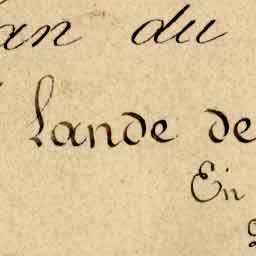 an du
Lande de
En